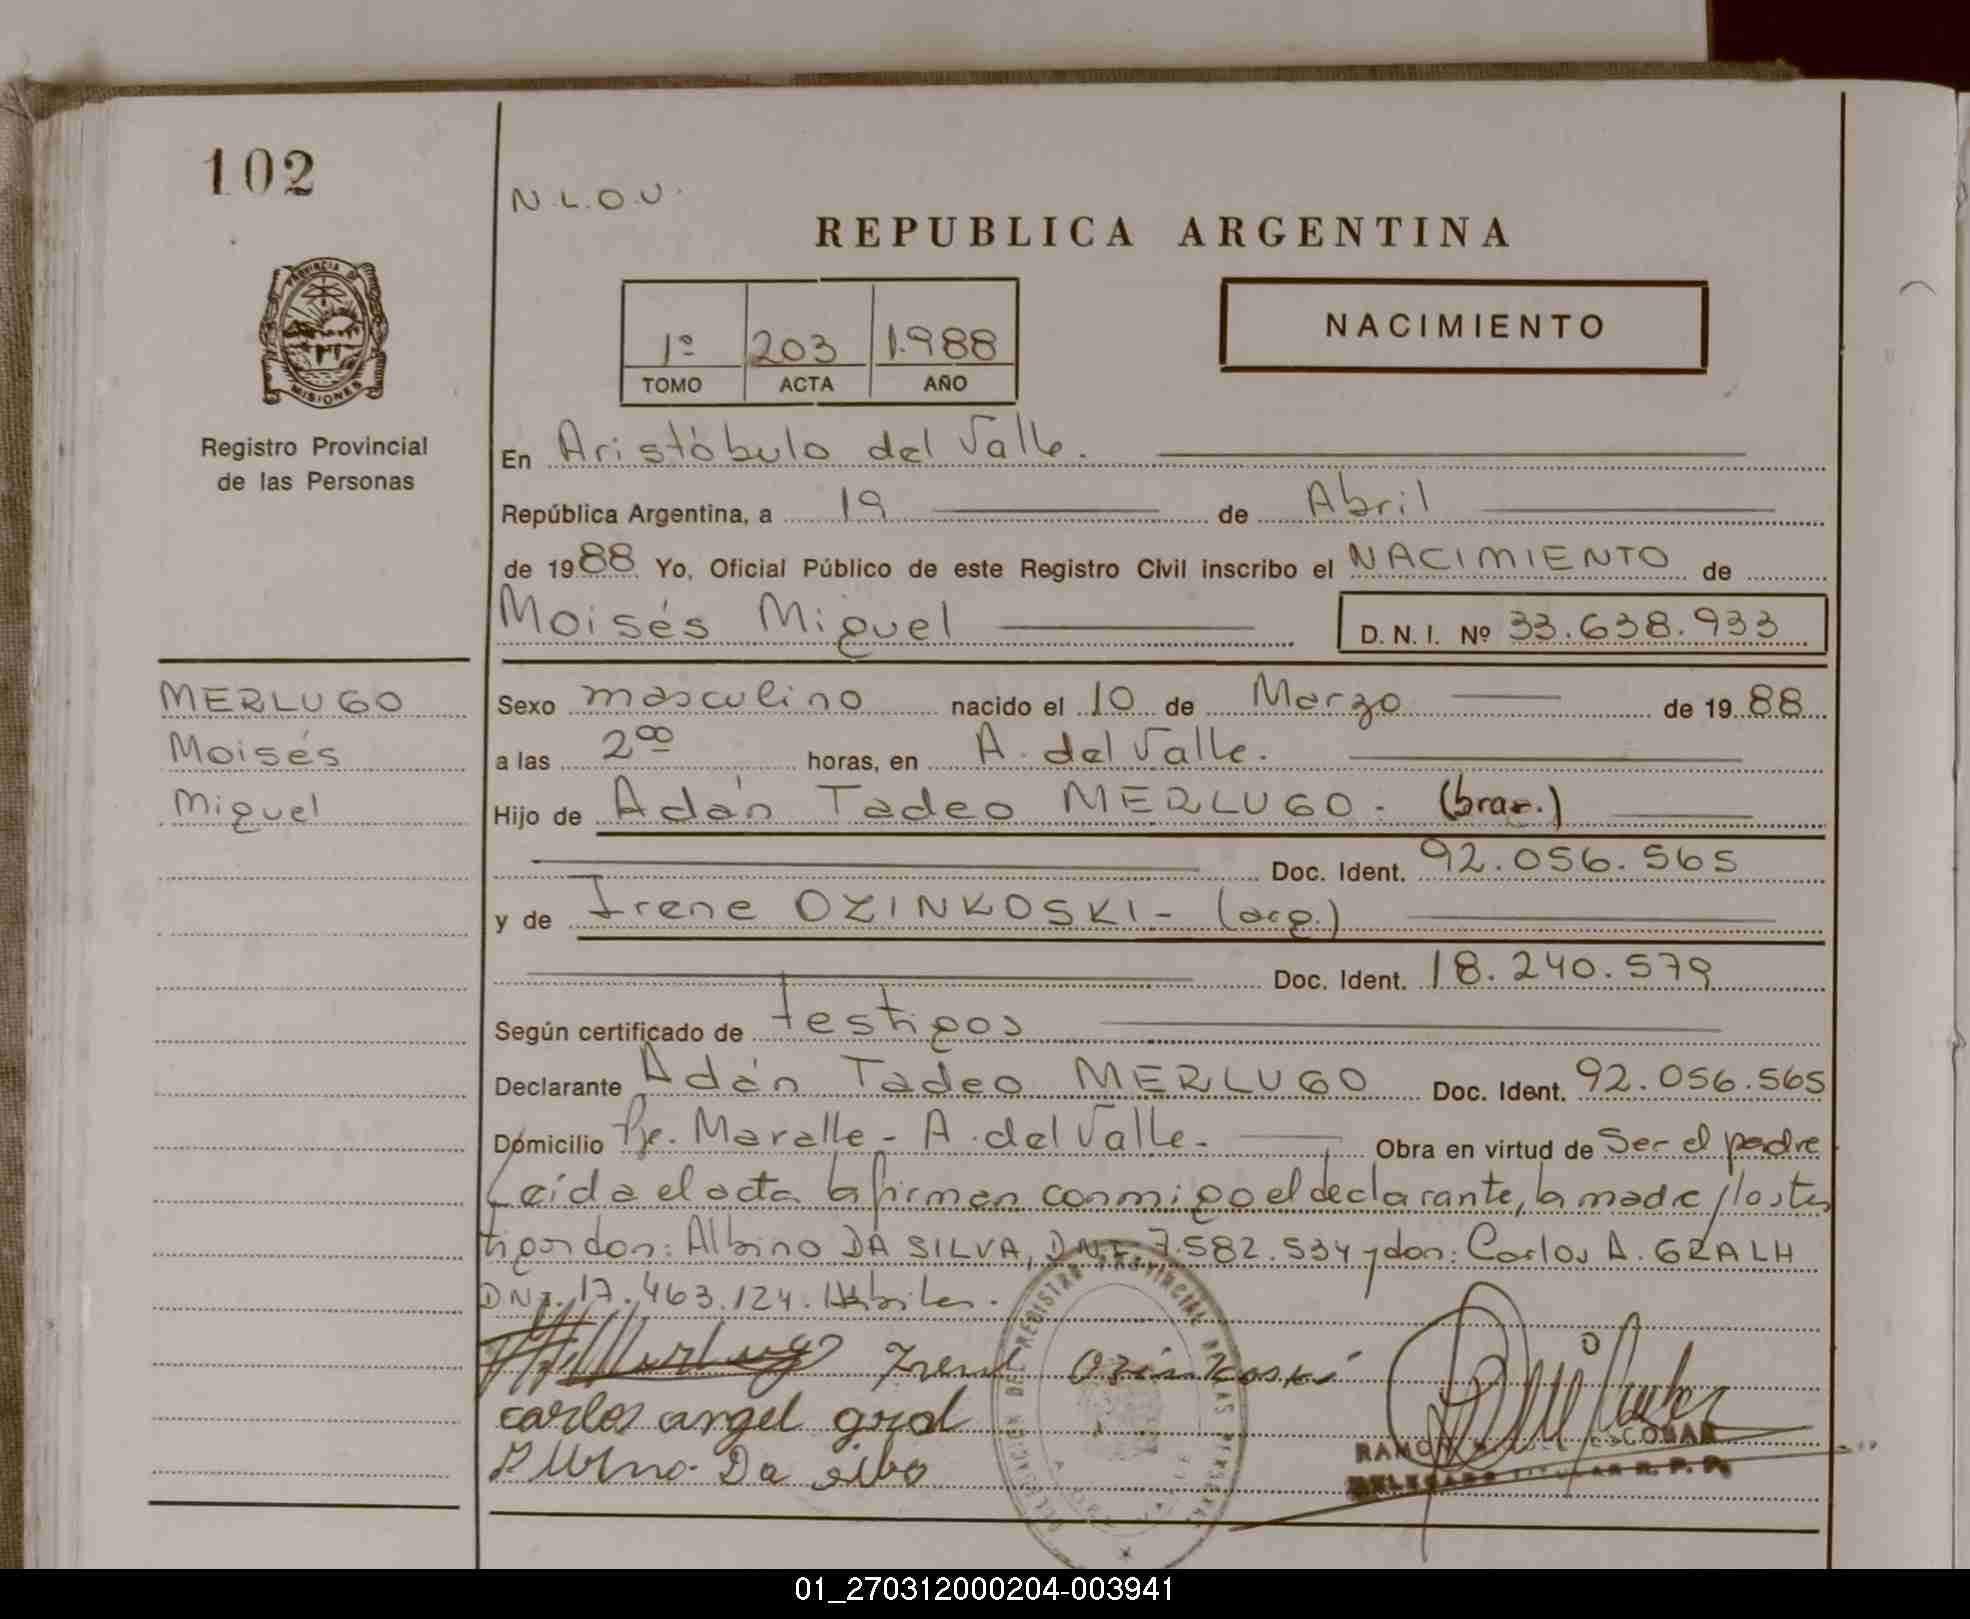 102
N.L.O.U.
REPUBLICA ARGENTINA
PROVINCIA DE
MISIONES
Registro Provincial
de las Personas
1º 203 1.988
TOMO ACTA AÑO
NACIMIENTO
En Aristóbulo del Valle.
República Argentina, a 19 de Abril
de 1988 Yo, Oficial Público de este Registro Civil inscribo el NACIMIENTO de
Moisés Miguel D.N.I. Nº 33.638.933
MERLUGO
Moisés
Miguel
Sexo masculino nacido el 10 de Marzo de 1988
a las 200 horas, en A. del Valle.
Hijo de Adán Tadeo MERLUGO - (bras.)
Doc. Ident. 92.056.565
y de Irene OZINKOSKI - (arg.)
Doc. Ident. 18.240.579
Según certificado de testigos
Declarante Adán Tadeo MERLUGO Doc. Ident. 92.056.565
Domicilio A. del Valle - Obra en virtud de Ser el padre
Leída el acta la firman conmigo el declarante, la madre y los tes
tigos don: Albino DA SILVA, D.N.I. 7.582.534 y don: Carlos A. GRALH
DNI. 17.463.124. Hábiles.
Irene Ozinkoski
carlos angel gral
Albino Da silva
DELEGACION DEL REGISTRO PROVINCIAL DE LAS PERSONAS
RAMON ESCOBAR
DELEGADO TITULAR R. P. P.
01_270312000204-003941